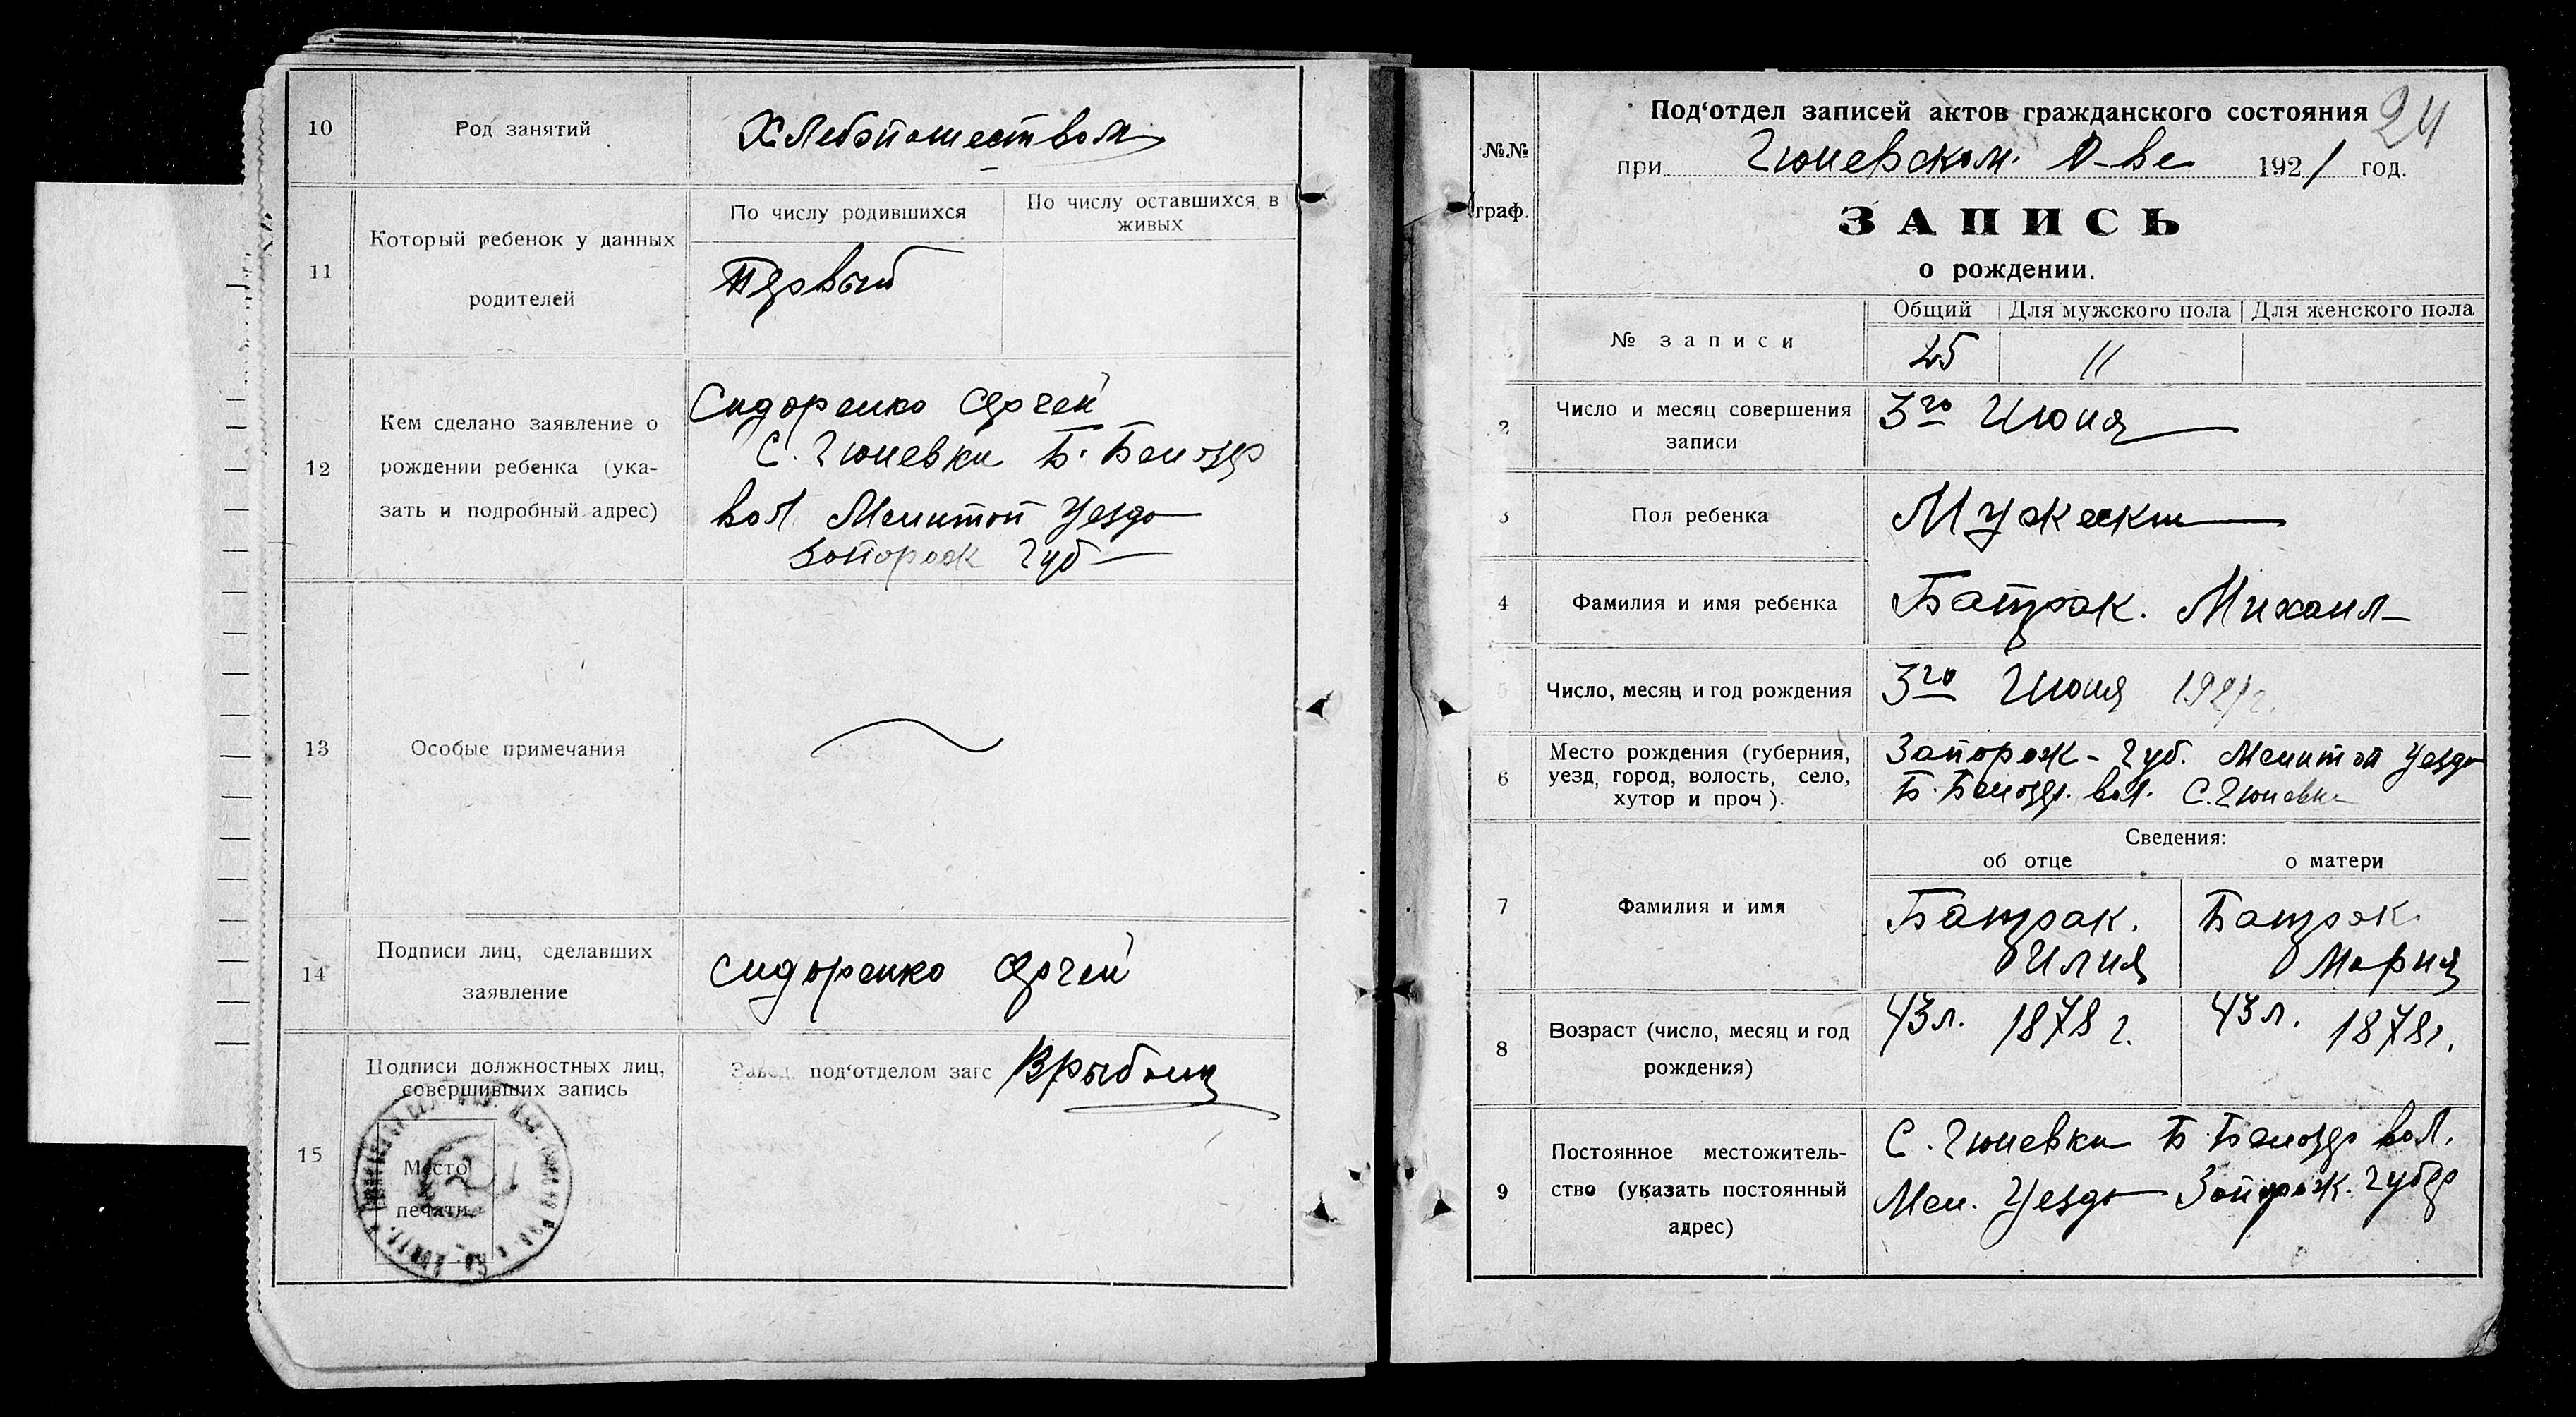 10
Род занятий
Хлебопашеством
11
Который ребенок у данных
родителей
По числу родившихся
По числу оставшихся в
живых
Первый
12
Кем сделано заявление о
рождении ребенка (ука-
зать и подробный адрес)
Сидоренко
С. Гюневки Б. Белозер
вол Мелитоп Уезда
Запорож Губ
13
Особые примечания
14
Подписи лиц, сделавших
заявление
Сидоренко
15
Подписи должностных лиц,
совершивших запись
Место
печати
Завед. под‘отделом загс
24
Под‘отдел записей актов гражданского состояния
при Гюневском О-ве 1921 год.
№№
граф.
ЗАПИСЬ
о рождении.
№ записи
Общий
Для мужского пола
Для женского пола
25
11
2
Число и месяц совершения
записи
3го Июня
3
Пол ребенка
4
Фамилия и имя ребенка
Батрак. Михаил
5
Число, месяц и год рождения
3го Июня 1921г.
6
Место рождения (губерния,
уезд, город, волость, село,
хутор и проч).
Запорож - Губ. Мелитоп Уезда
Б. Белозер. вол. С. Гюневка
Сведения:
об отце
о матери
7
Фамилия и имя
Батрак.
Илия
Батрак
Мария
8
Возраст (число, месяц и год
рождения)
43л. 1878 г.
43л. 1878г.
9
Постоянное местожитель-
ство (указать постоянный
адрес)
С. Гюневки Б Белозер вол.
Мел. Уезда Запорож. Губер